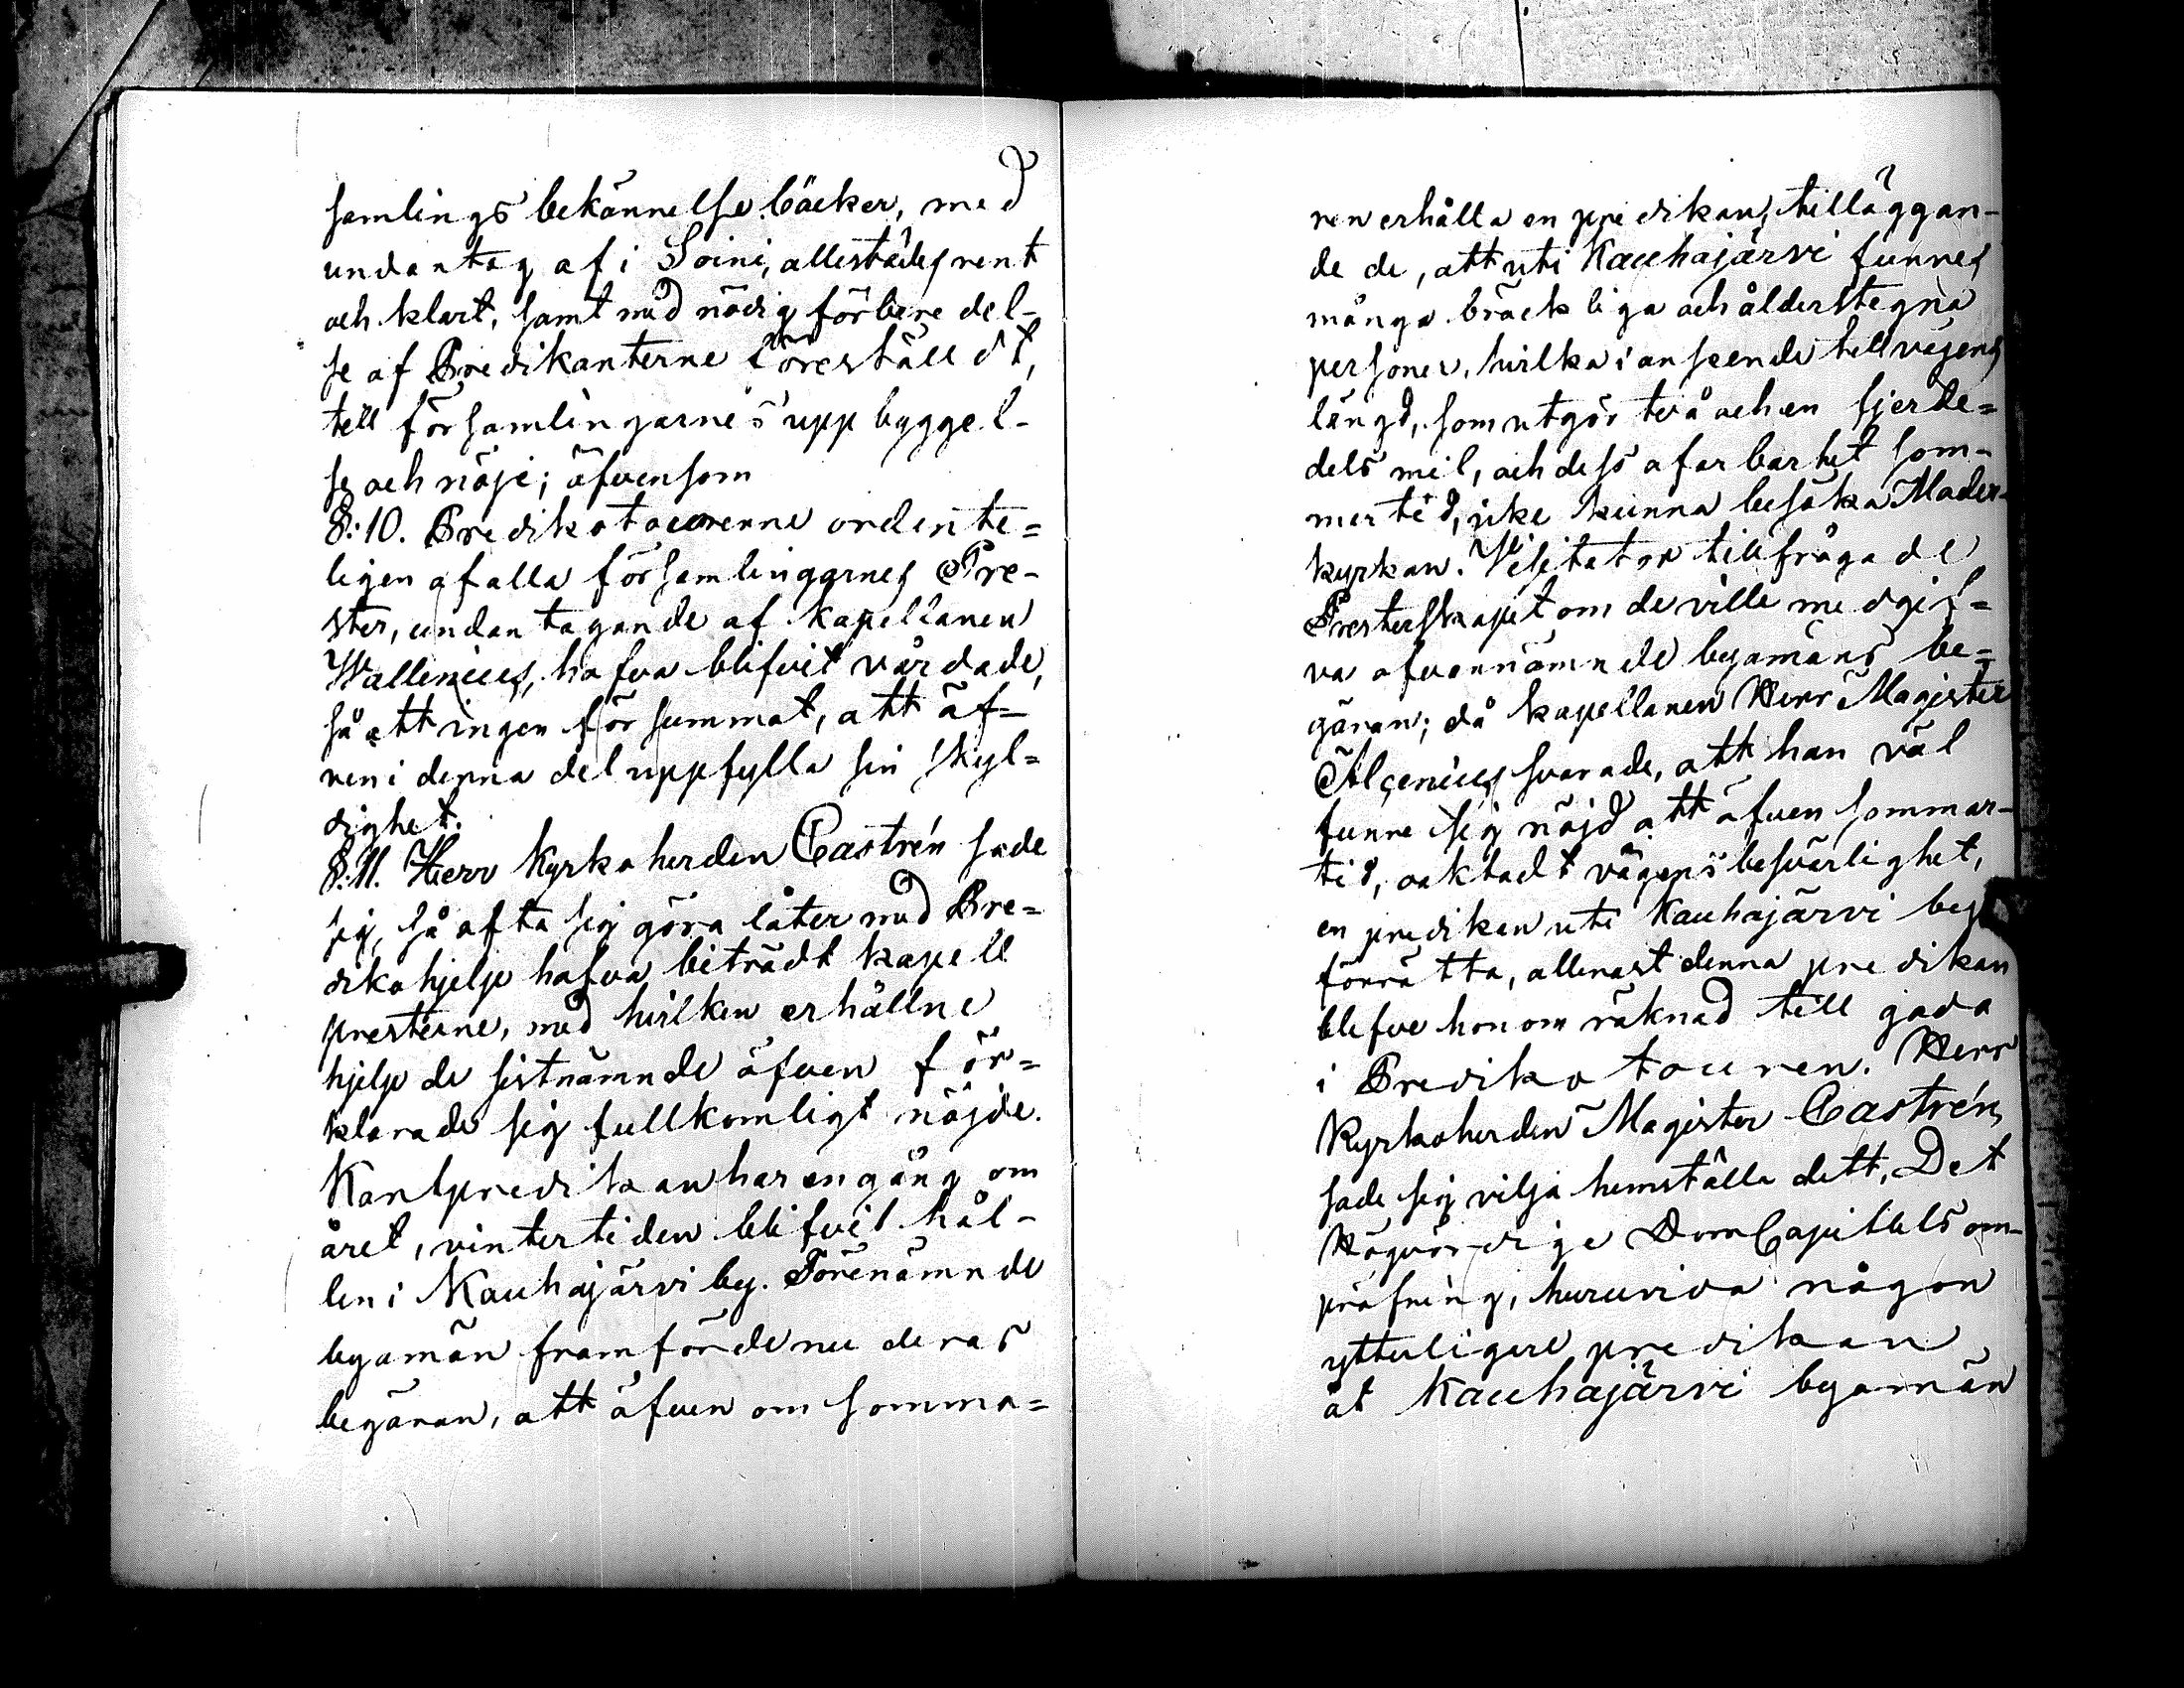 samlings bekännelse böcker, med
undantag af i Soini, allestädes rent
och klart, samt med nödig förberedel-
se af Predikanterne föreställdt,
till församlingarnes uppbyggel-
se och nöje; äfvensom
§:10. Predikotourerne ordente=
ligen af alla församlingarnes Pre-
ster, undantagande af kapellanen
Wallenius, hafva blifvit vårdade,
så att ingen försummat, att äf-
ven i denna del uppfylla sin skyl=
dighet.
§:11. Herr Kyrkoherden Castrén sade
sig, så ofta sig göra låter med Pre=
dikohjelp hafva biträdt kapell
presterne, med hvilken erhållne
hjelp de sistnämnde äfven för=
klarade sig fullkomligt nöjde.
Kantpredikan har en gång om
året, vintertiden blifvit hål-
len i Kauhajärvi by. Förenämnde
byamän framförde nu deras
begäran, att äfven om somma=
ren erhålla en predikan, tilläggan-
de de, att uti Kauhajärvi funnes
många bräckliga och ålderstegna
personer, hvilka i anseende till vägens
längd, som utgör två och en fjerde=
dels mil, och dess ofarbarhet som-
mertid, icke kunna besöka Moder-
kyrkan. Visitator tillfrågade
Presterskapet om de ville medgif=
va ofvannämnde byamäns be=
gäran; då kapellanen Herr Magister
Alcenius svarade, att han väl
funne sig nöjd att äfven sommar-
tid, oaktadt vägens besvärlighet,
en predikan uti Kauhajärvi by
förrätta, allenast denna predikan
blefve honom räknad till goda
i Predikotouren. Herr
Kyrkoherden Magister Castrén,
sade sig vilja hemställa dett, Det
Högvördige DomCapitels om-
pröfning, huruvida någon
ytterligere predikan
åt Kauhajärvi byamän